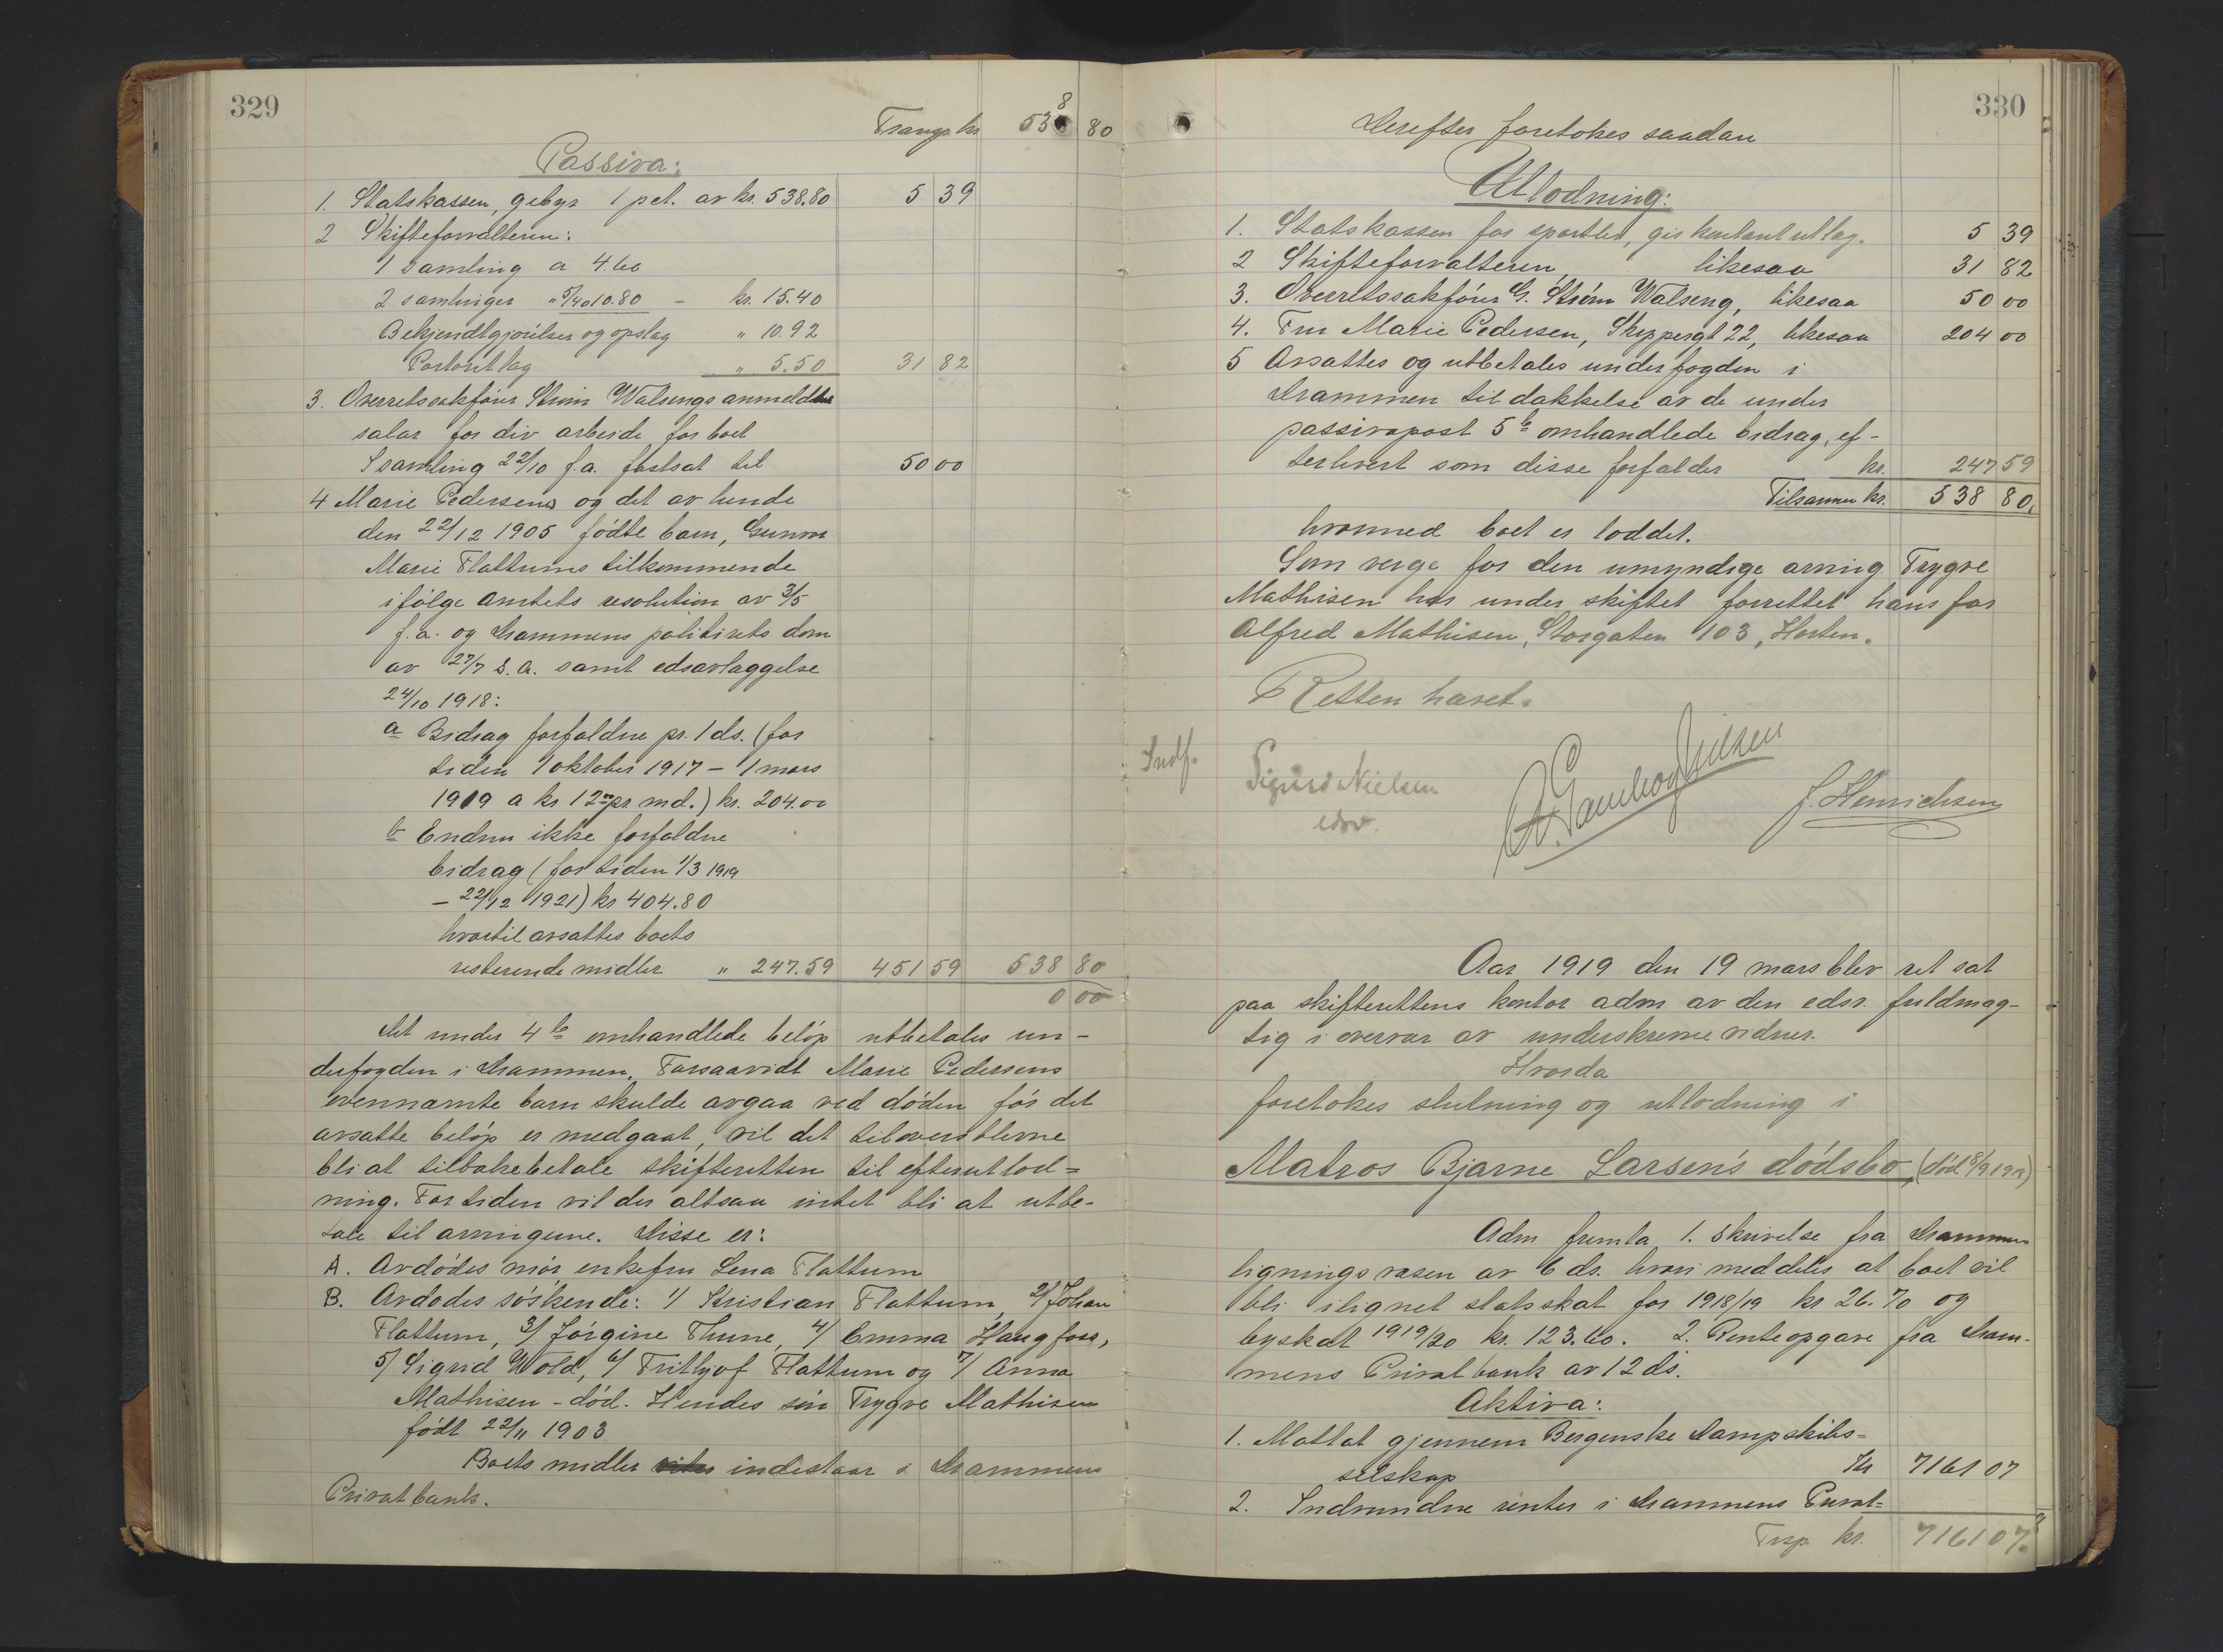 329
Transp. kr 538 80
8
Passiva:
1. Statskassen, gebyr 1 pct. av kr. 538.80 5 39
2 Skifteforvalteren:
1 samling a 4.60
2 samlinger " 5/40 10.80 - kr. 15.40
Bekjendtgjörelser og opslag " 10.92
Portoutlag " 5.50 31 82
3. Overretssakförer Ström Walsengs anmeldte
salær for div arbeide for boet
I samling 22/10 f.a. fastsat til 50 00
4 Marie Pedersens og det av hende
den 22/12 1905 födte barn, Gunvor
Marie Flattums tilkommende
ifölge Amtets resolution av 3/5
f.a. og Drammens politirets dom
av 27/7 s.a. samt edsavlæggelse
24/10 1918:
a Bidrag forfaldne pr. 1 ds. (for
tiden 1 oktober 1917 - 1 mars
1919 a kr 12.00 pr md.) kr. 204.00
b Endnu ikke forfaldne
bidrag (for tiden 1/3 1919
- 22/12 1921) kr 404.80
hvortil avsættes boets
resterende midler " 247.59 451 59 538 80
0 00
Det under 4 b omhandlede belöp utbetales un-
derfogden i Drammen. Forsaavidt Marie Pedersens
ovennævnte barn skulde avgaa ved döden för det
avsatte belöp er medgaat, vil det tiloversblevne
bli at tilbakebetale skifteretten til efterutlod=
ning. For tiden vil der altsaa intet bli at utbe-
tale til arvingerne. Disse er:
A. Avdödes mor enkefru Lena Flattum
B. Avdödes söskende: 1/ Kristian Flattum, 2/ Johan
Flattum, 3/ Jörgine Thune, 4/ Emma Haugfoss,
5/ Sigrid Wold, 6/ Frithjof Flattum og 7/ Anna
Mathisen - död. Hendes sön Trygve Mathisen
födt 22/11 1903
Boets midler indestaar i Drammens
Privatbank.
330
Derefter foretokes saadan
Utlodning:
1. Statskassen for sportler, gis kontant utlæg. 5 39
2 Skifteforvalteren, likesaa 31 82
3. Overretssakförer G. Ström Walseng, likesaa 50 00
4. Fru Marie Pedersen, Skippergt 22, likesaa 204 00
5 Avsættes og utbetales underfogden i
Drammen til dækkelse av de under
passivapost 5 b omhandlede bidrag, ef-
terhvert som disse forfalder kr. 247 59
Tilsammen kr. 538 80.
hvormed boet er loddet.
Som verge for den umyndige arving Trygve
Mathisen har under skiftet forrettet hans far
Alfred Mathisen, Storgaten 103, Horten.
Retten hævet.
Indf.
Sigurd Nielsen
edsv.
J. Henrichsen
Aar 1919 den 19 mars blev ret sat
paa skifterettens kontor adm av den edsv. fuldmæg-
tig i overvær av underskrevne vidner.
Hvorda
foretokes slutning og utlodning i
Matros Bjarne Larsen's dödsbo, (död 8/9 1918)
Adm fremla 1. Skrivelse fra Drammens
ligningsvæsen av 6 ds. hvori meddeles at boet vil
bli ilignet statsskat for 1918/19 kr 26.70 og
byskat 1919/20 kr. 123.60. 2. Renteopgave fra Dram-
mens Privatbank av 12 ds.
Aktiva:
1. Mottat gjennem Bergenske Dampskibs=
selskap Kr 7161 07
2. Indvundne renter i Drammens Privat=
Trsp. kr. 7161 07.